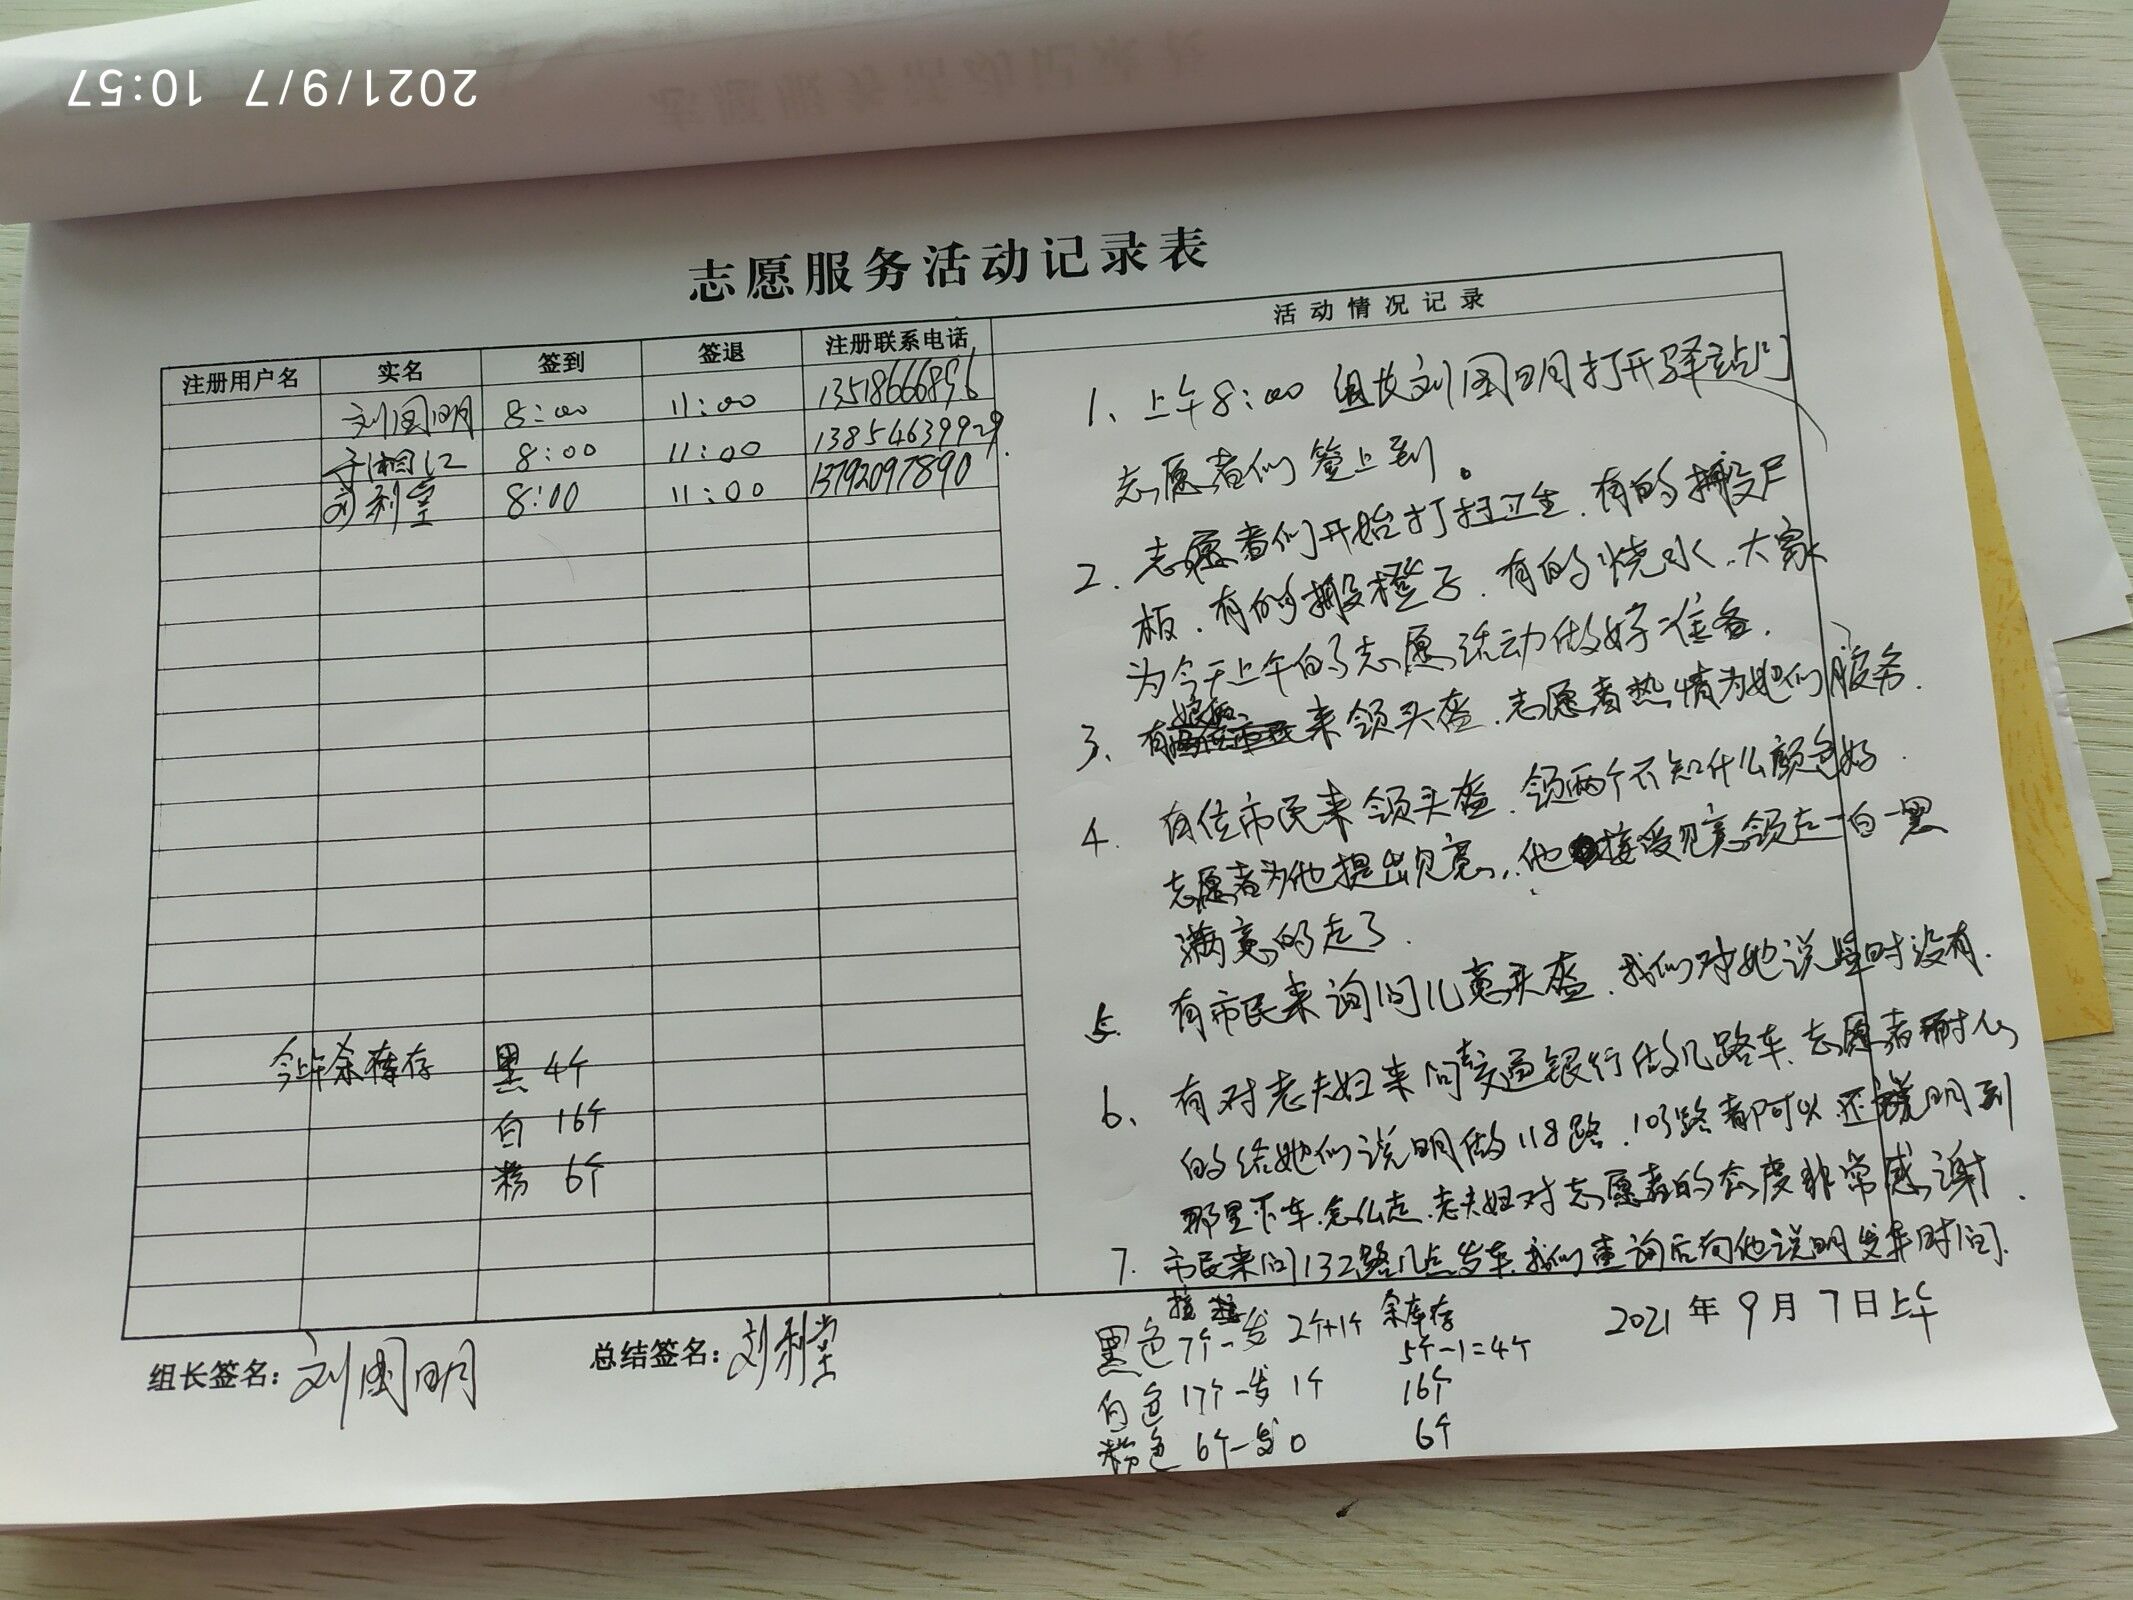 2021/9/7 10:57
志愿服务活动记录表
注册用户名 实名 签到 签退 注册联系电话 活动情况记录
刘国明 8:00 11:00 13518666896
于湘江 8:00 11:00 13854639929
刘利堂 8:00 11:00 13792097890
今上午余库存 黑 4个
白 16个
粉 6个
1、上午8:00 组长刘国明打开驿站门
志愿者们签上到。
2. 志愿者们开始打扫卫生.有的搬展
板.有的搬橙子.有的烧水.大家
为今天上午的志愿活动做好准备.
3、有 来领头盔.志愿者热情为她们服务.
4. 有位市民来领头盔.领两个不知什么颜色好.
志愿者为他提出见意.他接受见意领走一白一黑
满意的走了.
5. 有市民来询问儿童头盔.我们对她说暂时没有.
6、有对老夫妇来问交通银行做几路车、志愿者耐心
的给她们说明做118路.103路都可以还说明到
那里下车.怎么走.老夫妇对志愿者的态度非常感谢.
7. 市民来问132路几点发车.我们查询后向他说明发车时间.
2021年9月7日上午
接 余库存
黑色7个-发2个+1个 5个-1=4个
白色17个-发1个 16个
粉色6个-发0 6个
组长签名:刘国明 总结签名:刘利堂